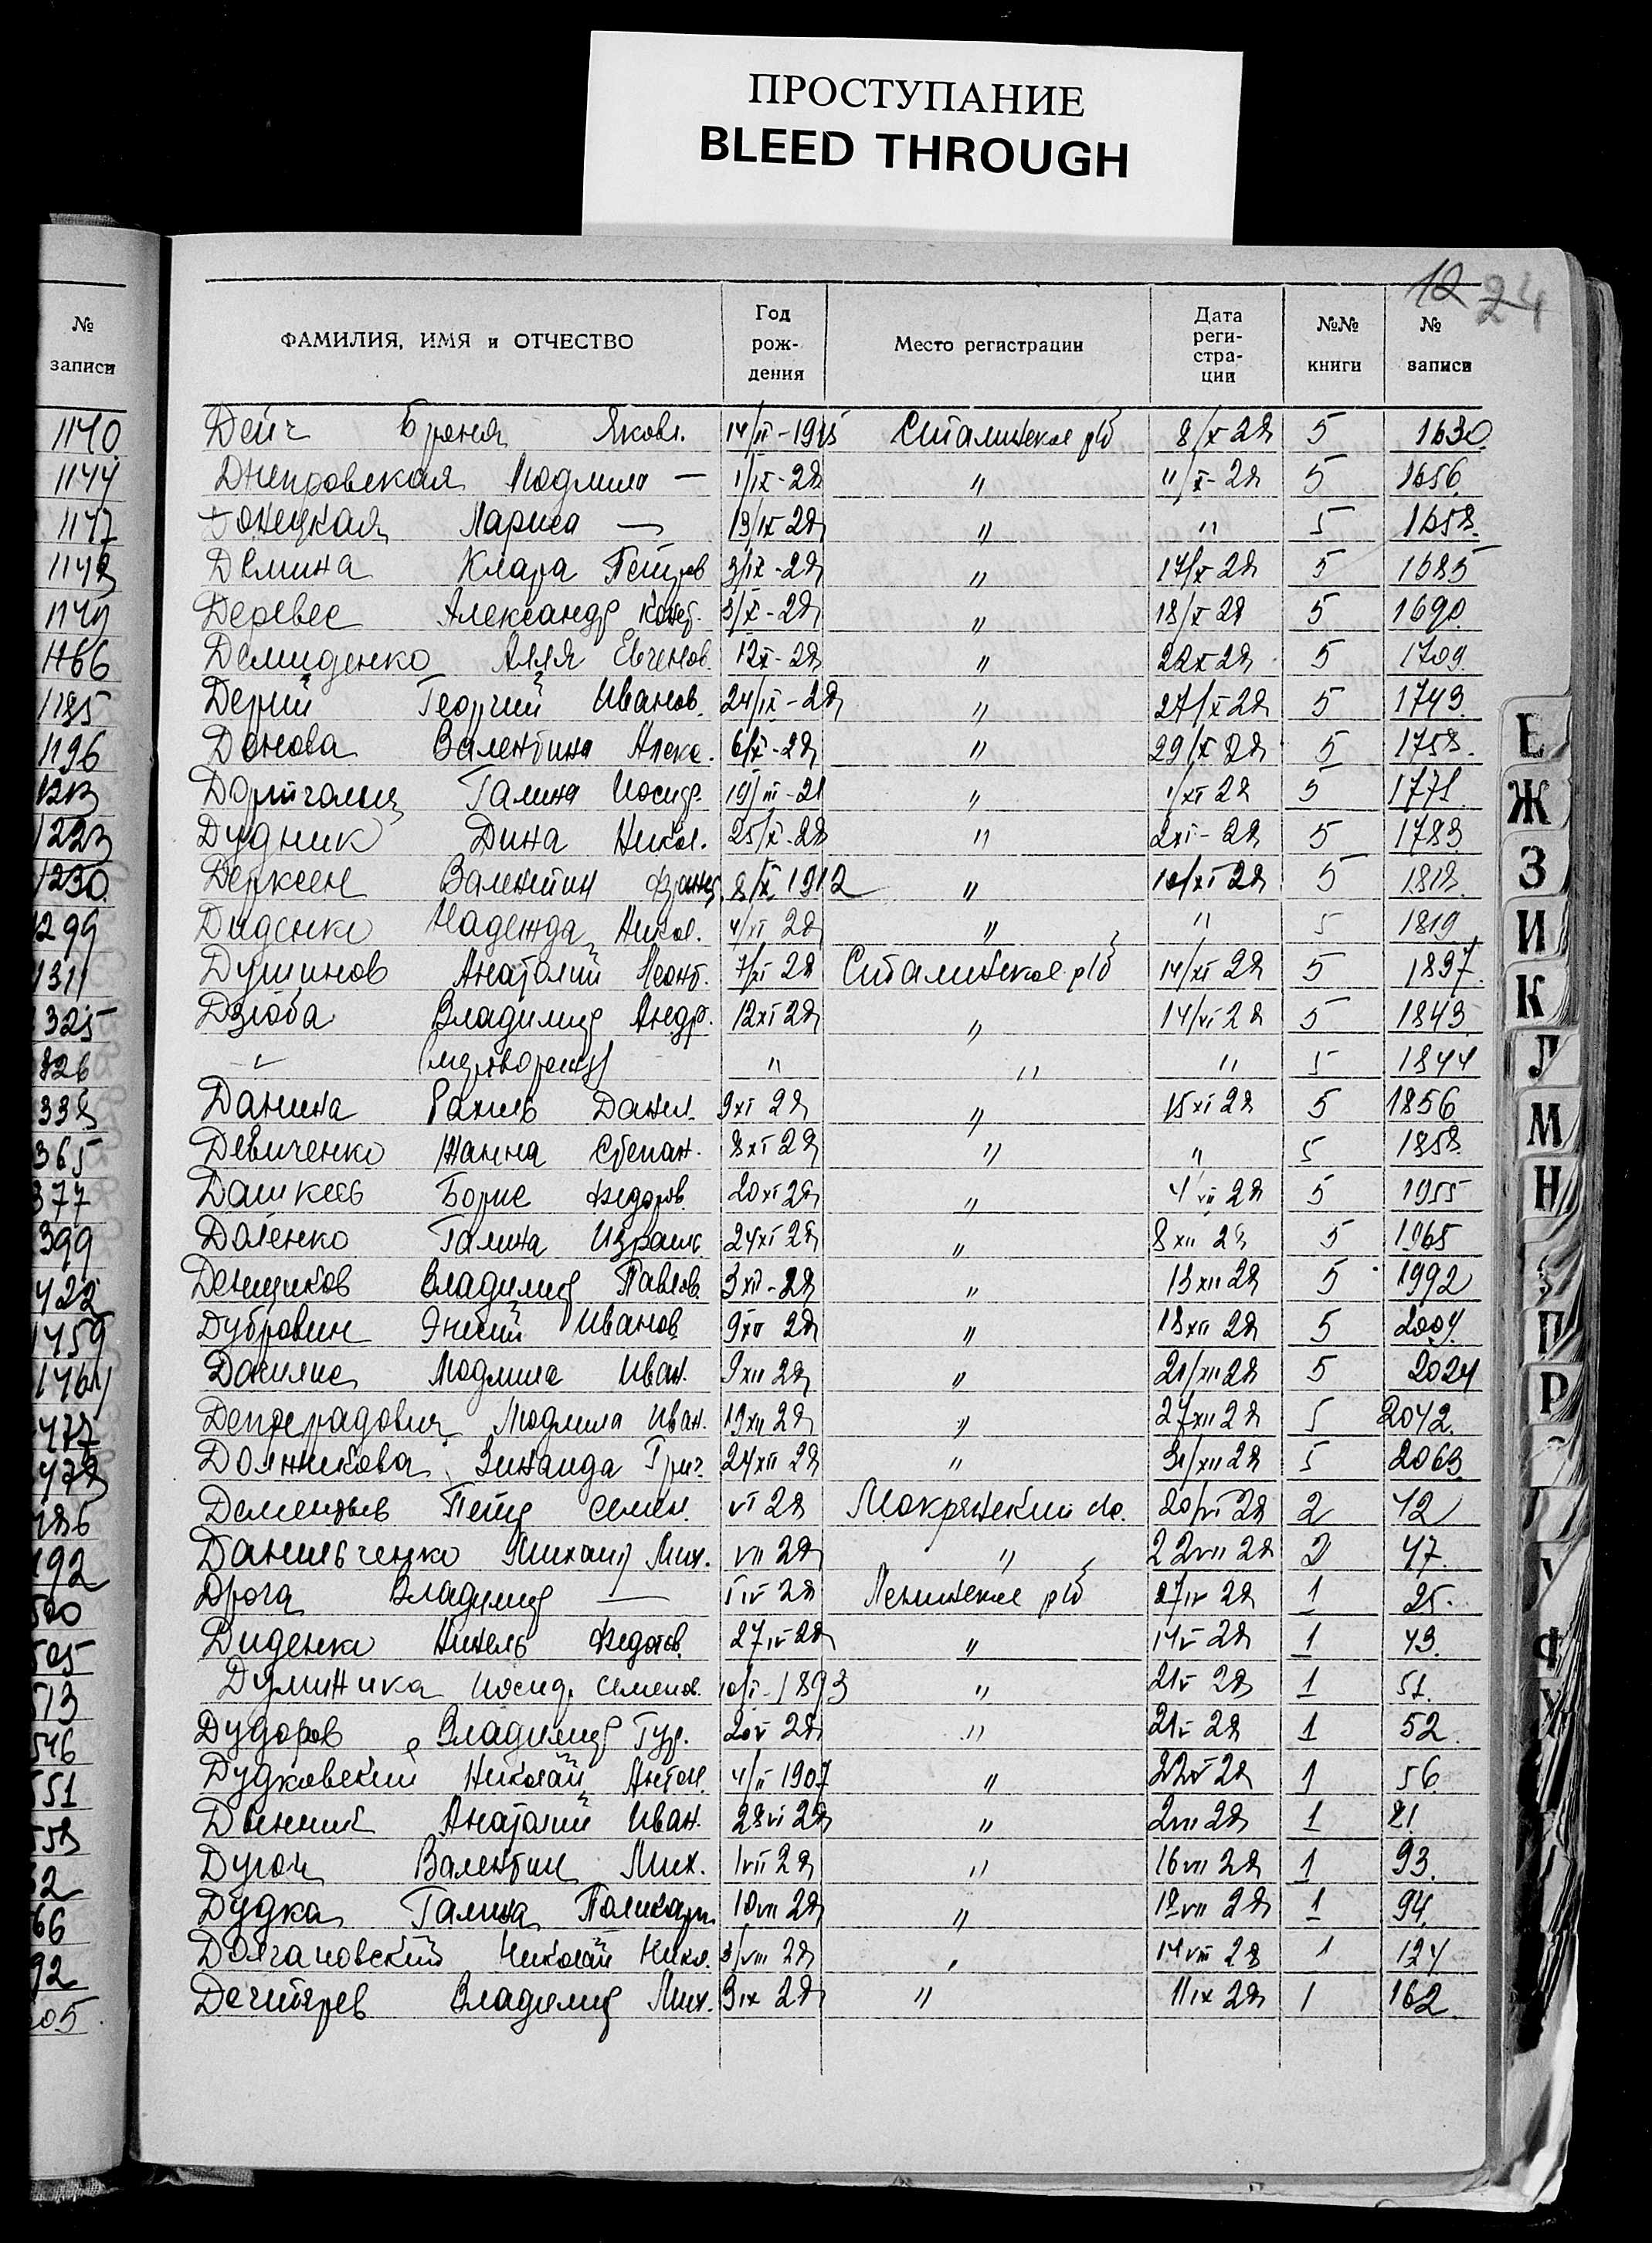 ПРОСТУПАНИЕ
BLEED THROUGH
12 24
№ записи
ФАМИЛИЯ, ИМЯ и ОТЧЕСТВО Год рож-дения Место регистрации Дата реги-стра-ции №№ книги № записи
1140 Дейч Броня Яковл. 14/III-1915 Сталинское р/б 8/X 28 5 1630
1144 Днепровская Людмила — 1/IX-28 " 11/X-28 5 1656
1147 Донецкая Лариса — 19/IX 28 " " 5 1658
1148 Демина Клара Петров 3/IX-28 " 17/X 28 5 1685
1149 Деревес Александр Конст. 3/X-28 " 18/X 28 5 1690
1166 Демиденко Алла Евгенов. 12X-28 " 22X 28 5 1709
1185 Дерий Георгий Иванов. 24/IX-28 " 27/X 28 5 1749
1196 Донова Валентина Алекс. 6/X-28 " 29/X 28 5 1758
Галина Иосиф. 19/III-21 " 1/XI 28 5 1771
1223 Дудник Дина Никол. 25/X-28 " 2XI-28 5 1783
1230 Дерксен Валентин Франц. 8/X 1912 " 10/XI 28 5 1818
1299 Диденко Надежда Никол. 4/XI 28 " " 5 1819
1311 Душинов Анатолий Леонт. 7/XI 28 Сталинское р/б 14/XI 28 5 1837
1325 Дзюба Владимир Андр. 12XI 28 " 14/XI 28 5 1843
826 " (мертворожд) " " " 5 1844
338 Данина Рахиль Данил. 9XI 28 " 15XI 28 5 1856
365 Девиченко Жанна Степан. 8XI 28 " " 5 1858
377 Дашкевич Борис Федоров. 20XI 28 " 4XII 28 5 1955
399 Доленко Галина 24XI 28 " 8XII 28 5 1965
422 Денщиков Владимир Павлов. 3XII-28 " 13XII 28 5 1992
1459 Дубровин Иванов 9XII 28 " 18XII 28 5 2004
1464 Данилис Людмила Иван. 9XII 28 " 21/XII 28 5 2024
477 Депрерадович Людмила Иван. 19XII 28 " 27XII 28 5 2042
478 Должикова Зинаида Григ. 24XII 28 " 31/XII 28 5 2063
486 Дементьев Петр Семен. VI 28 Мокрянский с/с. 20/VI 28 2 42
492 Данильченко Михаил Мих. VII 28 " 22VII 28 2 47
500 Дрога Владимир — 1IV 28 Ленинское р/б 27IV 28 1 25
505 Диденко Нинель Федотов. 27IV 28 " 14V 28 1 43
513 Думиника Иосиф. Семенов. 10/I-1893 " 21V 28 1 51
546 Дудоров Владимир Гур. 20V 28 " 21V 28 1 52
551 Дудковский Николай Антон. 4/II 1907 " 22V 28 1 56
558 Анатолий Иван. 28VI 28 " 2VII 28 1 81
62 Дугон Валентин Мих. 1VII 28 " 16VII 28 1 93
66 Дудка Галина Поликарп. 10VII 28 " 17VII 28 1 94
92 Долгановский Николай Никол. 3/VIII 28 " 14VIII 28 1 124
605 Дегтярев Владимир Мих. 9IX 28 " 11IX 28 1 162
Е
Ж
З
И
К
Л
М
Н
П
Р